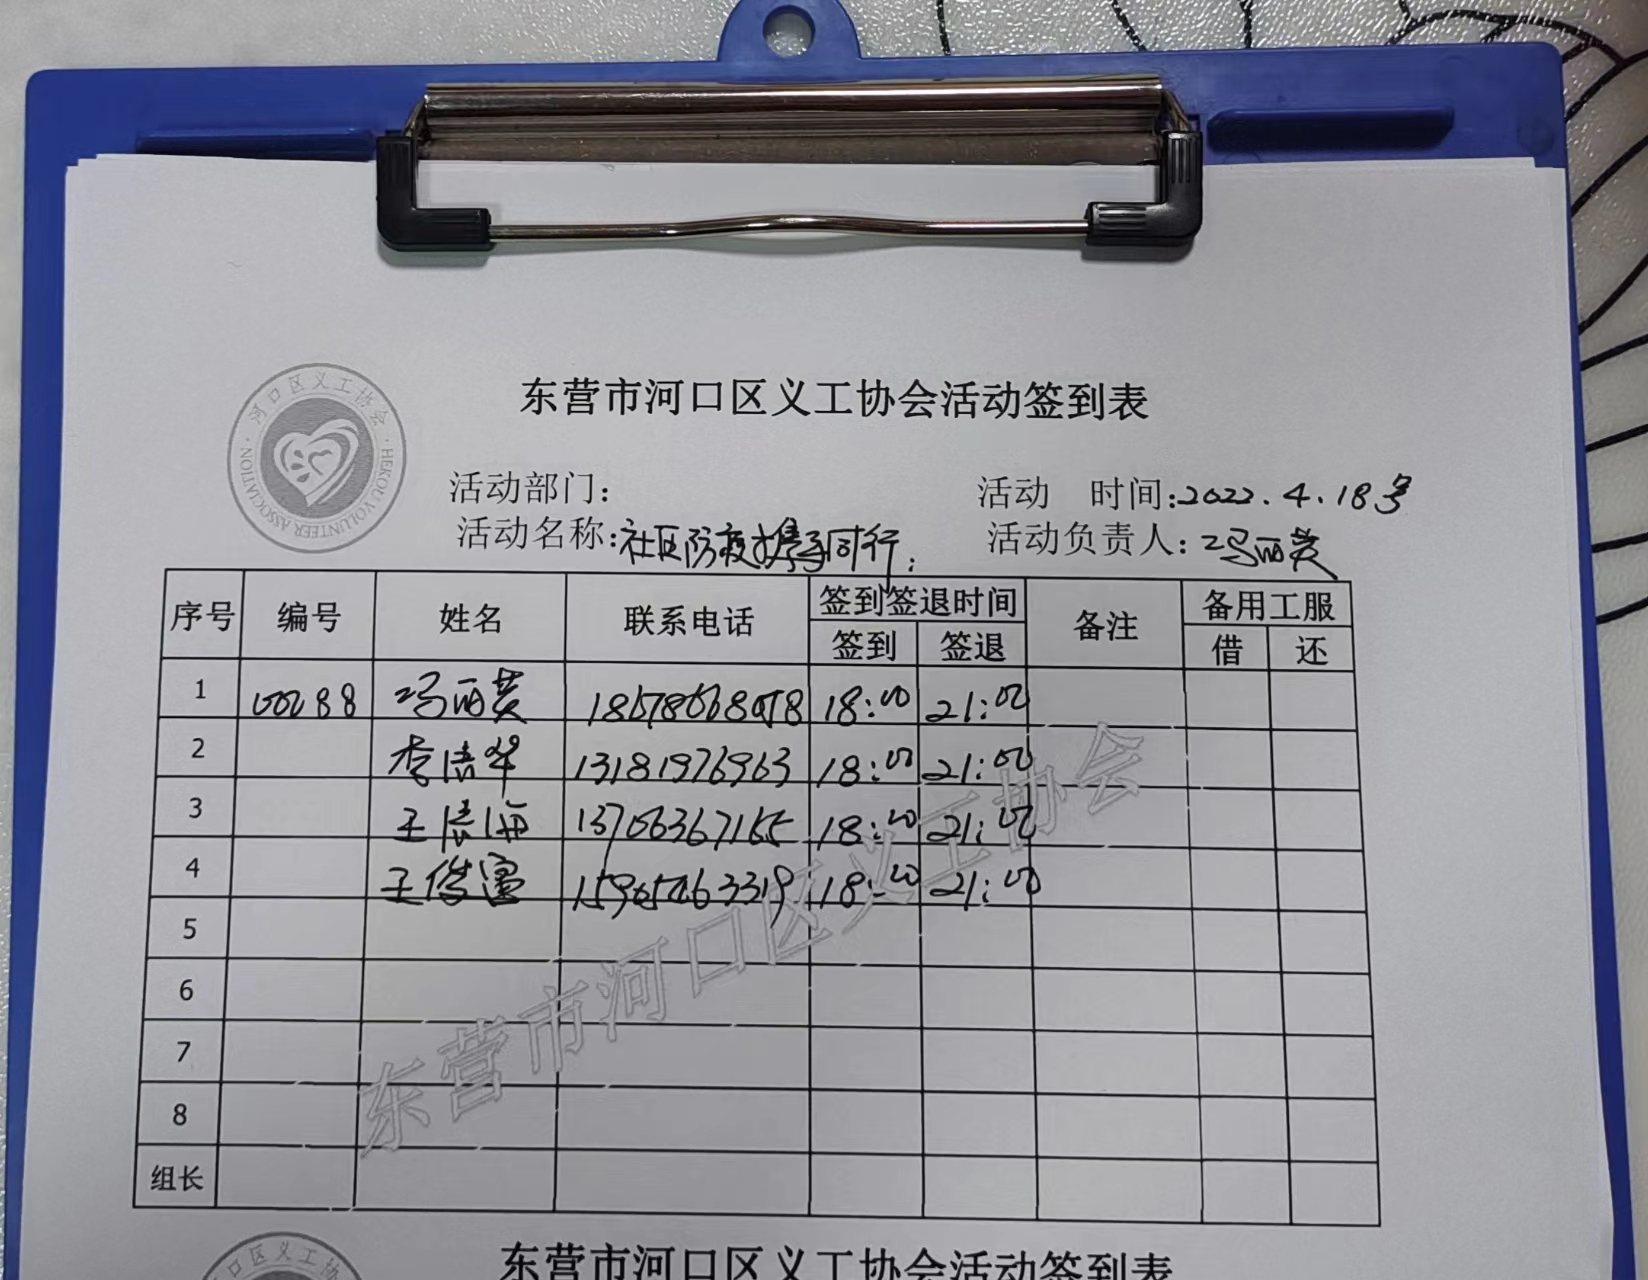 河口区义工协会
HEKOU VOLUNTEER ASSOCIATION
东营市河口区义工协会活动签到表
活动部门：
活动 时间：2022.4.18号
活动名称：社区防疫携手同行；
活动负责人：冯丽英
序号 编号 姓名 联系电话 签到签退时间 备注 备用工服
签到 签退 借 还
1 00288 冯丽英 18:00 21:00
2 李洁华 13181976963 18:00 21:00
3 王 13706367165 18:00 21:00
4 王俊 18:00 21:00
5
6
7
8
组长
东营市河口区义工协会
口区义工协
东营市河口区义工协会活动签到表